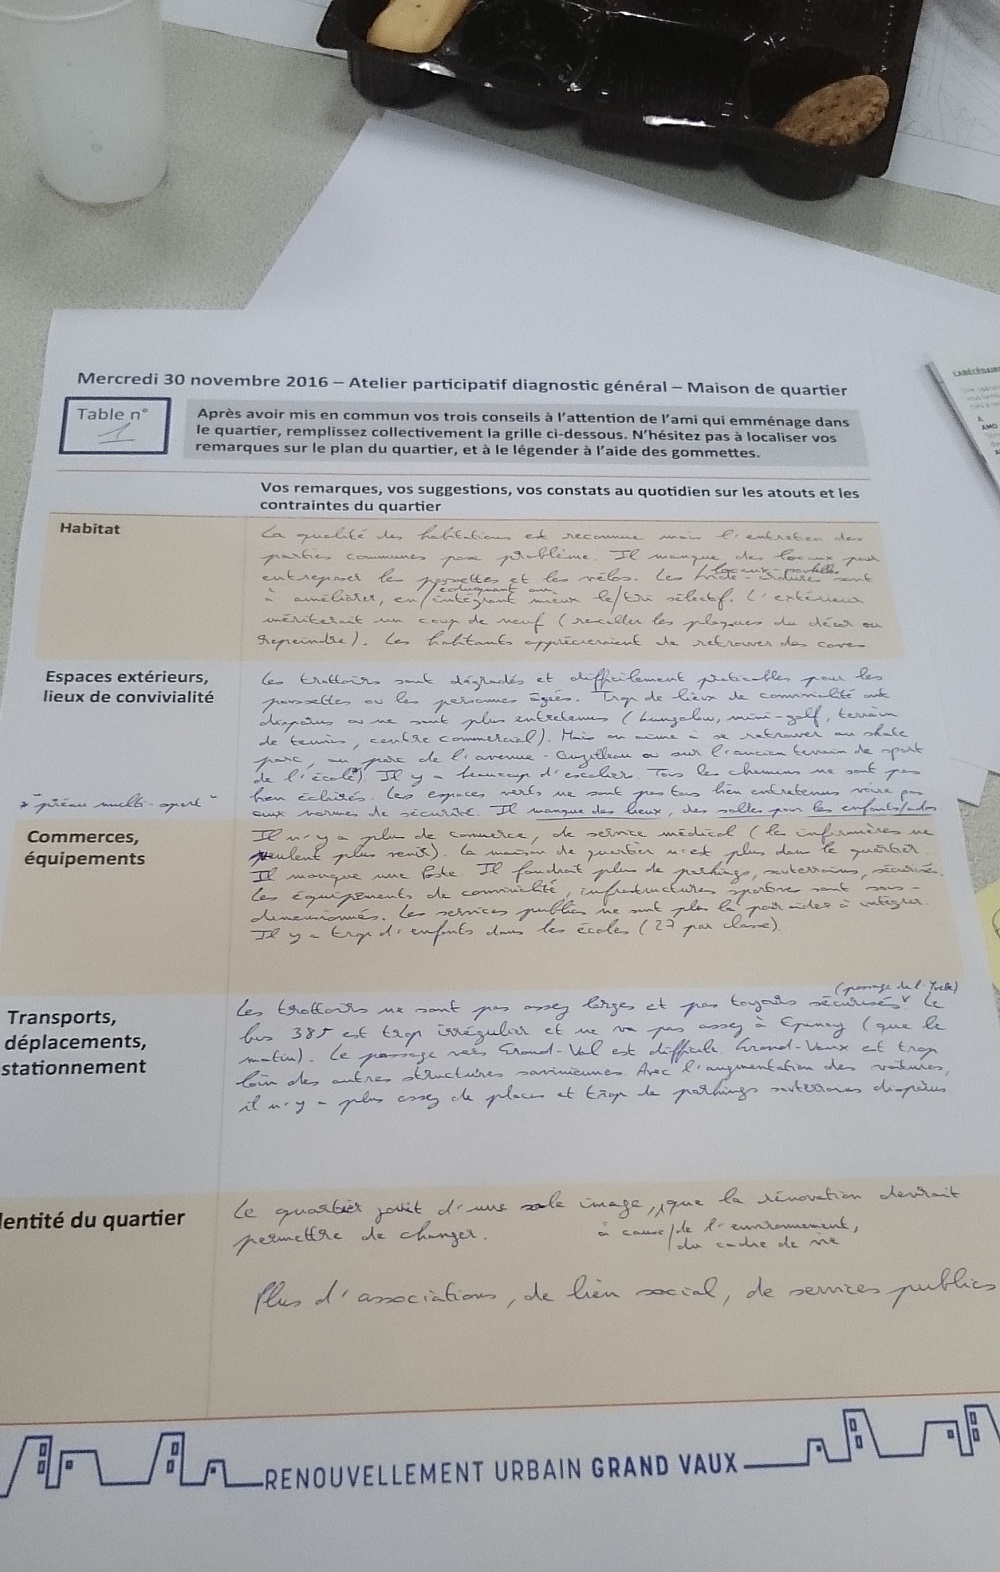 Mercredi 30 novembre 2016 – Atelier participatif diagnostic général – Maison de quartier
Table n°
1
Après avoir mis en commun vos trois conseils à l'attention de l'ami qui emménage dans
le quartier, remplissez collectivement la grille ci-dessous. N'hésitez pas à localiser vos
remarques sur le plan du quartier, et à le légender à l'aide des gommettes.
Vos remarques, vos suggestions, vos constats au quotidien sur les atouts et les
contraintes du quartier
Habitat
La qualité des habitations est reconnue mais l'entretien des
parties communes pose problème. Il manque des locaux pour
entreposer les poussettes et les vélos. Les locaux-poubelles sont
à améliorer, en éduquant au / intégrant mieux le tri sélectif. L'extérieur
mériterait un coup de neuf (resceller les plaques du décor ou
repeindre). Les habitants apprécieraient de retrouver des caves
Espaces extérieurs,
lieux de convivialité
Les trottoirs sont dégradés et difficilement praticables pour les
poussettes ou les personnes âgées. Trop de lieux de convivialité ont
disparus ou ne sont plus entretenus (bungalow, mini-golf, terrain
de tennis, centre commercial). Mais on aime à se retrouver au skate
parc, au parc de l'avenue ou sur l'ancien terrain de sport
de l'école*). Il y a beaucoup d'escalier. Tous les chemins ne sont pas
bien éclairés. Les espaces verts ne sont pas tous bien entretenus voire pas
aux normes de sécurité. Il manque des lieux, des salles pour les enfants/ados
* "préau multi-sport"
Commerces,
équipements
Il n'y a plus de commerce, de service médical (les infirmières ne
veulent plus venir). La maison de quartier n'est plus dans le quartier.
Il manque une Poste. Il faudrait plus de parkings, souterrains, sécurisés.
Les équipements de convivialité, infrastructures sportives sont sous-
dimensionnés. Les services publics ne sont plus là pour aider à intégrer.
Il y a trop d'enfants dans les écoles (27 par classe).
Transports,
déplacements,
stationnement
(passage de l'Yvette)
Les trottoirs ne sont pas assez larges et pas toujours sécurisés. Le
bus 385 est trop irrégulier et ne va pas assez à Epinay (que le
matin). Le passage vers Grand-Val est difficile. Grand-Vaux est trop
loin des autres structures saviniennes. Avec l'augmentation des voitures,
il n'y a plus assez de places et trop de parkings souterrains disparus
lentité du quartier
Le quartier jouit d'une sale image, que la rénovation devrait
permettre de changer.
à cause / de l'environnement,
du cadre de vie
Plus d'associations, de lien social, de services publics
RENOUVELLEMENT URBAIN GRAND VAUX
AMO